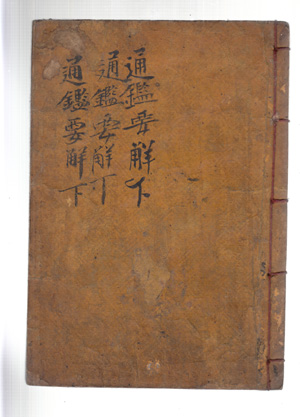 通鑑要解下
通鑑要解下
通鑑要解下